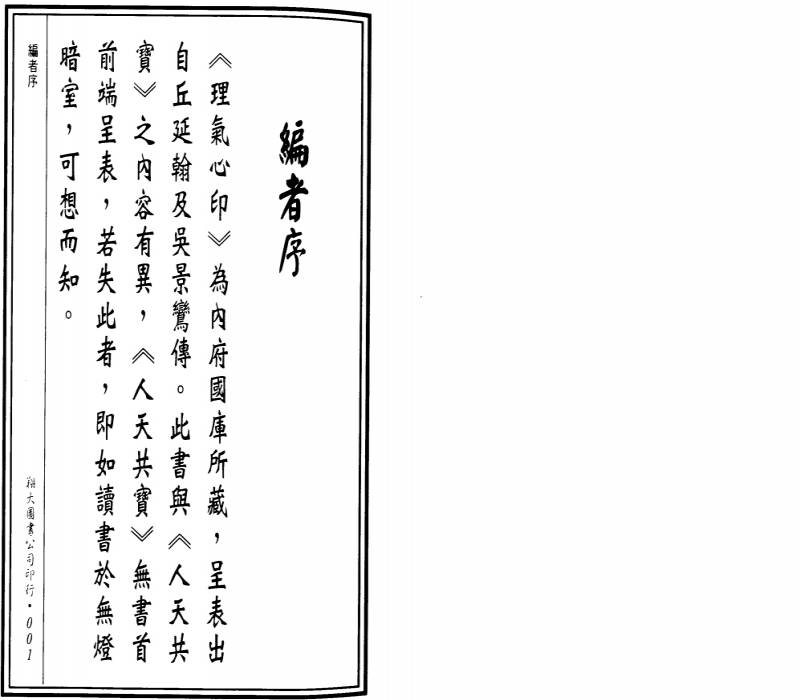 編者序
《理氣心印》為內府國庫所藏，呈表出
自丘延翰及吳景鸞傳。此書與《人天共
寶》之內容有異，《人天共寶》無書首
前端呈表，若失此者，即如讀書於無燈
暗室，可想而知。
編者序
翔大圖書公司印行·001